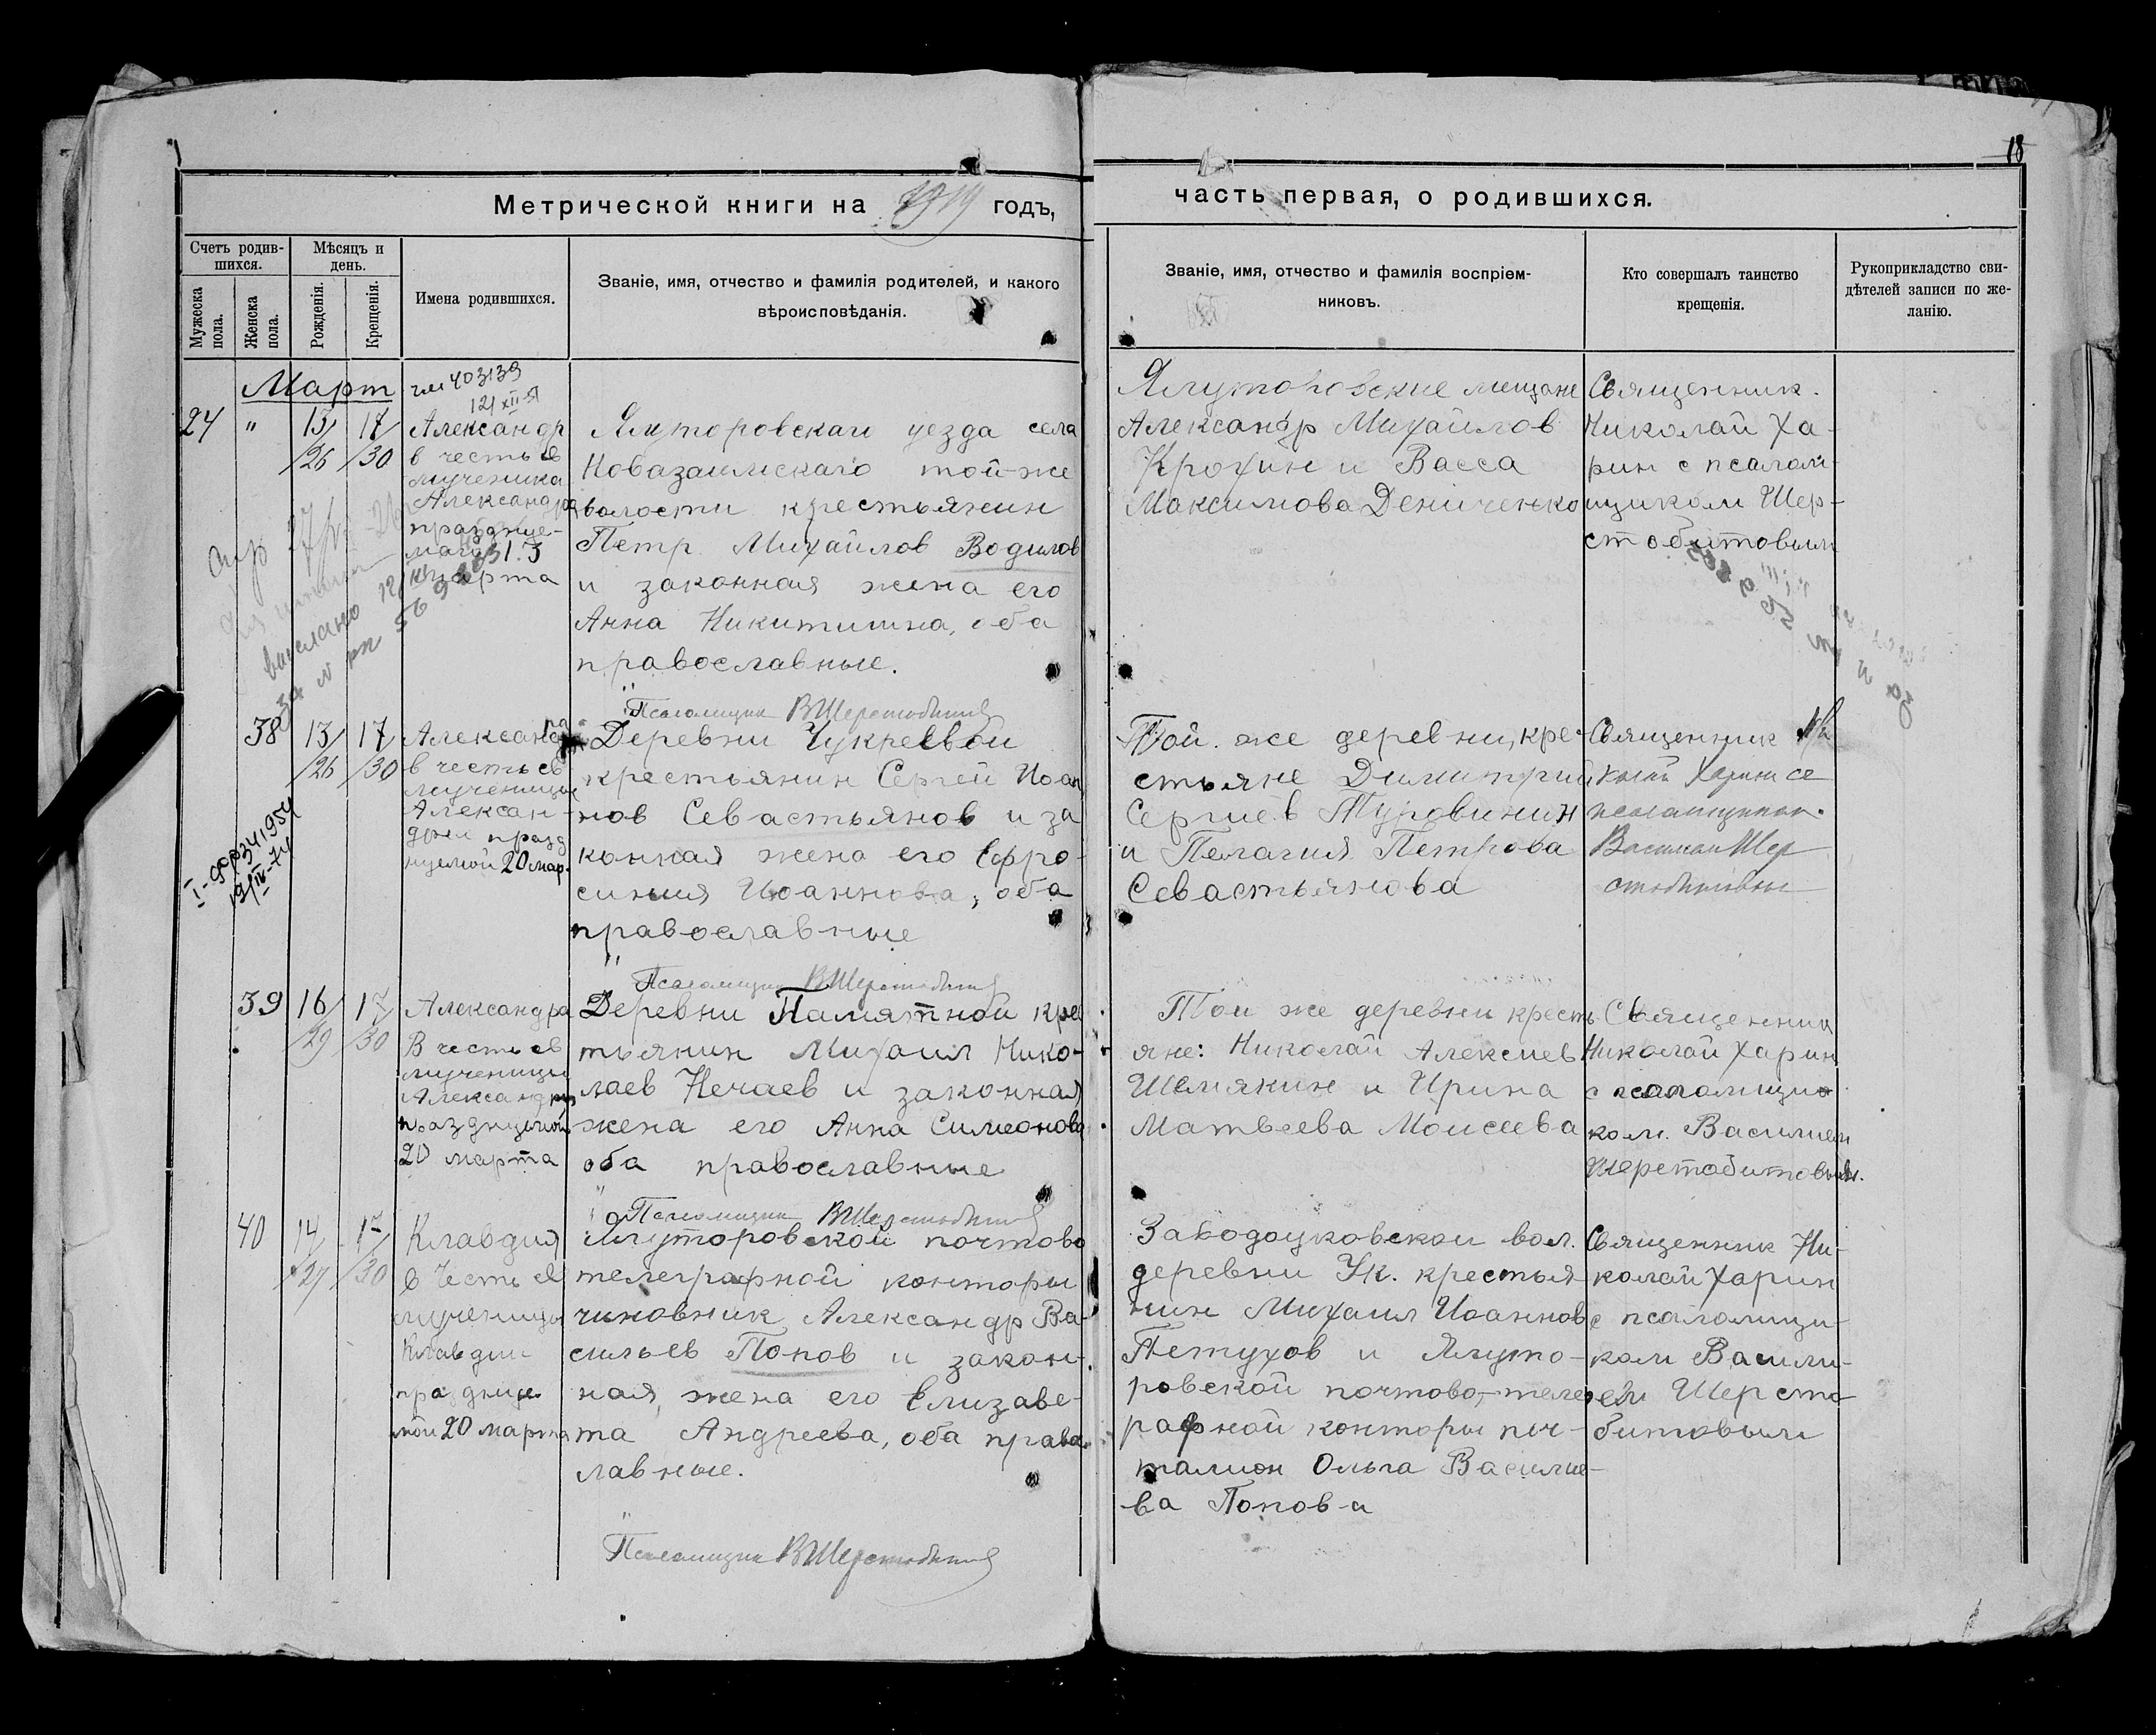 18
Метрической книги на 1919 годъ,
часть первая, о родившихся.
Счетъ родив-
шихся.
Мужеска пола.
Женска пола.
Мѣсяцъ и
день.
Рожденія.
Крещенія.
Имена родившихся.
Званіе, имя, отчество и фамилія родителей, и какого
вѣроисповѣданія.
Званіе, имя, отчество и фамилія воспріем-
никовъ.
Кто совершалъ таинство
крещенія.
Рукоприкладство сви-
дѣтелей записи по же-
ланію.
Март
403139
24 " 13/26 17/30
Александр
в честь св
мученика
Александра
празднуе-
маго 13
марта
Ялуторовскаго уезда села
Новазаимскаго той-же
волости крестьянин
Петр Михайлов Водилов
и законная жена его
Анна Никитична, оба
православные.
Псаломщик ВШерстобитов
Ялуторовские мещане
Александр Михайлов
Крохин и Васса
Максимова Дениченко
Священник
Николай Ха-
рин с псалом-
щиком Шер-
стобитовым
выслано
за №
38 13/26 17/30
Александра
в честь св
мученицы
Алексан-
дры празд
нуемой 20 мар.
Деревни Чукреевой
крестьянин Сергей Иоан
нов Севастьянов и за
конная жена его Ефро-
синия Иоаннова, оба
православные
Псаломщик ВШерстобитов
Той же деревни, кре-
стьяне Димитрий
Сергиев Туровинин
и Пелагия Петрова
Севастьянова
Священник Ни
колай Харин с
псаломщиком
Василием Шер
стобитовым
39 16/29 17/30
Александра
В честь св
мученицы
Александры
празднуемой
20 марта
Деревни Памятной крес
тьянин Михаил Нико-
лаев Нечаев и законная
жена его Анна Симеонова
оба православные
Псаломщик ВШерстобитов
Той же деревни кресть
яне: Николай Алексиев
Шемякин и Ирина
Матвеева Моисеева
Священник
Николай Харин
с псаломщи
ком. Василием
Шерстобитовым.
40 14/27 17/30
Клавдия
в честь св
мученицы
Клавдии
празднуе
мой 20 марта
Ялуторовской почтово
телеграфной конторы
чиновник Александр Ва-
сильев Попов и закон-
ная, жена его Елизаве-
та Андреева, оба право
лавные.
Псаломщик ВШерстобитов
Заводоуковской вол.
деревни Ук. крестья
нин Михаил Иоаннов
Петухов и Ялуто-
ровской почтово,-телег
рафной конторы поч-
талион Ольга Василие-
ва Попова
Священник Ни-
колай Харин
с псаломщи-
ком Васили-
ем Шерсто
битовым